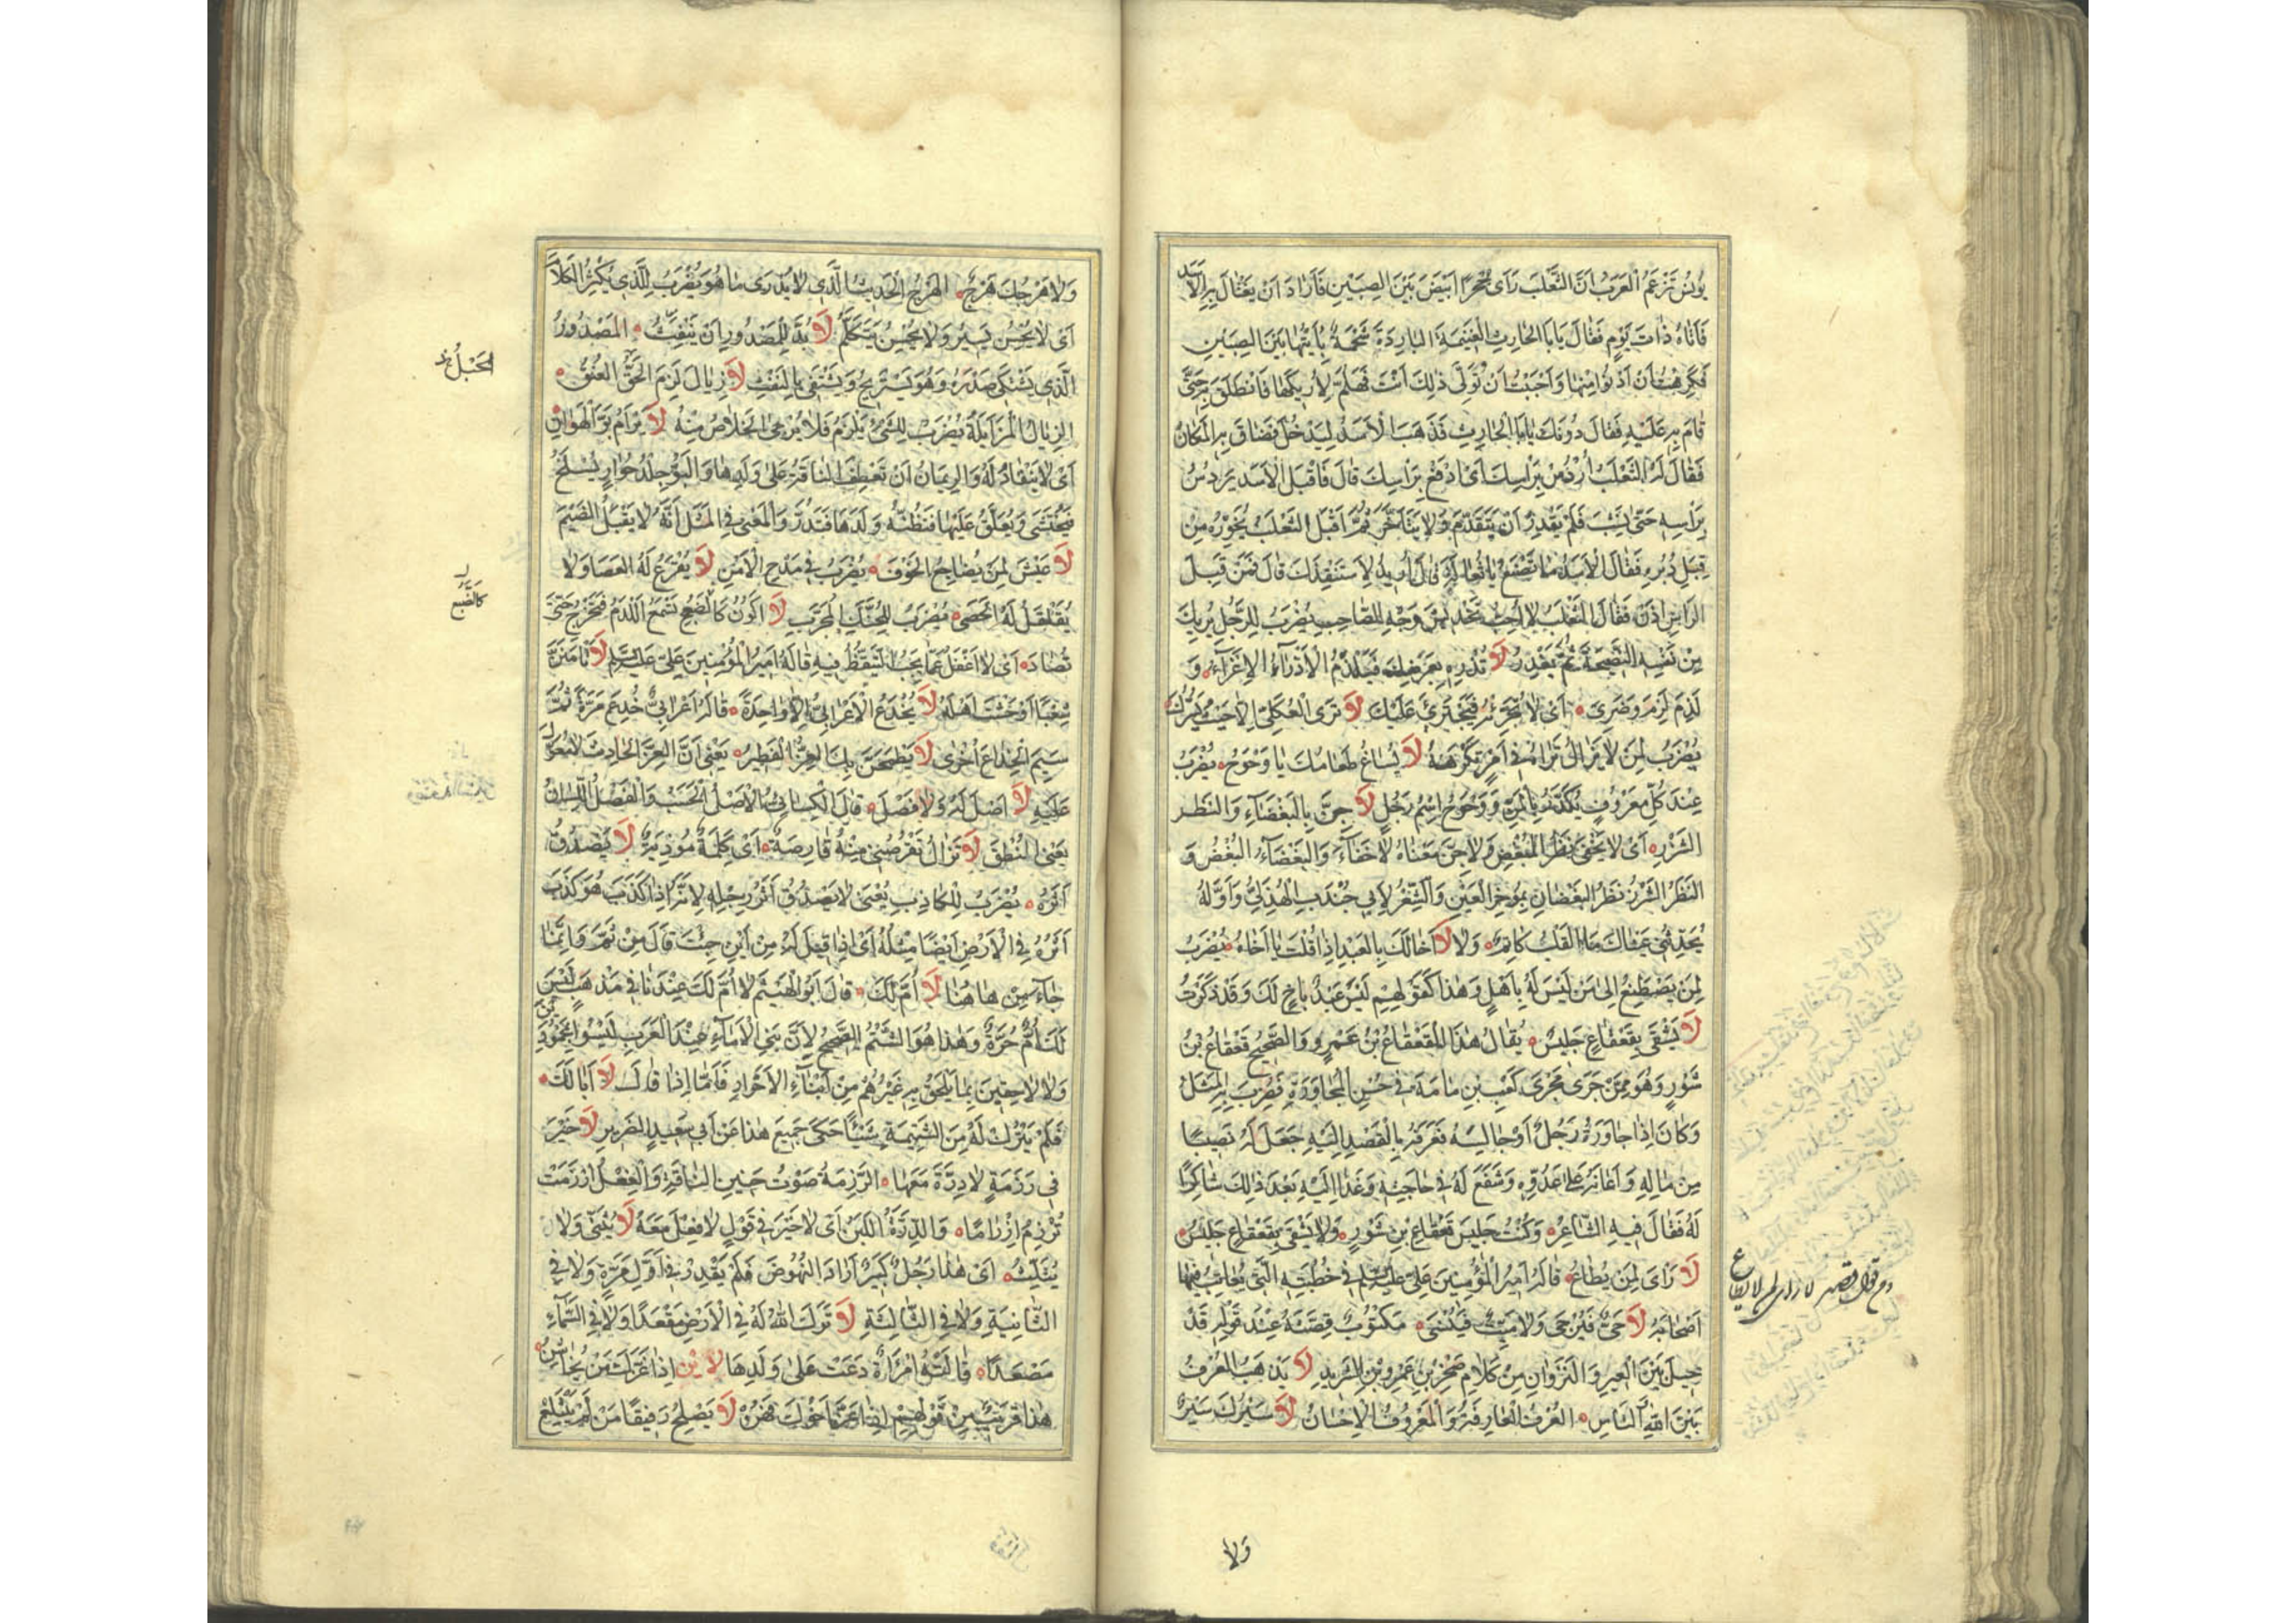 يونس تزعم العرب ان الثعلب رأى حجرا ابيض بين الصبين فاراد ان يغتال به الاسد
فاتاه ذات يوم فقال يا با الحارث الغنيمة الباردة شحمة رايتها بين الصبين
فكرهت ان ادنو منها واحببت ان تولى ذلك انت فهلم لاريكها فانطلق به حتى
قام به عليه فقال دونك يا با الحارث فذهب الاسد ليدخل فضاق به المكان
فقال له الثعلب اردس براسك اى ادفع براسك قال فاقبل الاسد يردس
براسه حتى نشب فلم يقدر ان يتقدم ولا يتاخر ثم اقبل الثعلب يخوره من
قبل دبره فقال الاسد ما تصنع يا ثعالة قال اريد لاستنقذك قال فمن قبل
الراس اذن فقال الثعلب لا احب تخديش وجه الصاحب يضرب للرجل يريك
من نفسه النصيحة ثم يغدر لا تدره بعرضك فيلذم الاذراء الاغراء و
لذم لزم وضرى اى لا تجرئه فيجترئ عليك لا ترى العكلى الا حيث يسوءك
يضرب لمن لا يزال تراه في امر تكرهه لا يساغ طعامك يا وحوح يضرب
عند كل معروف يكدر بالمن ووحوح اسم رجل لا جن بالبغضاء والنظر
الشزر اى لا يخفى نظر المبغض ولا جن معناه لا خفاء والبغضاء البغض و
النظر الشزر نظر الغضبان بموخر العين والشعر لابي جندب الهذلي واوله
يحدثني عيناك ما القلب كاتم ولا لا اخا لك بالعبد اذا قلت يا اخاه يضرب
لمن يصطنع الى من ليس له باهل وهذا كقولهم ليس عبد باخ لك وقد ذكرت
لا يشقى بقعقاع جليس يقال هذا القعقاع بن عمرو والصحيح قعقاع بن
شور وهو ممن جرى مجرى كعب بن مامة في حسن المجاورة فضرب به المثل
وكان اذا جاوره رجل او جالسه فعرفه بالقصد اليه جعل له نصيبا
من ماله واعانه على عدوه وشفع له في حاجته وغدا اليه بعد ذلك شاكرا
له فقال فيه الشاعر وكنت جليس قعقاع بن شور ولا يشقى بقعقاع جليس
لا راى لمن لا يطاع قاله امير المؤمنين علي عليه السلم في خطبته التي يعاتب فيها
اصحابه لا حى فيرجى ولا ميت فينسى مكتوب قصته عند قوله قد
حيل بين العير والنزوان من كلام صخر بن عمرو بن الشريد لا يذهب العرف
بين الله والناس العرف العارفة والمعروف الاحسان لا سيرك سير
ولا
ولا هرجك هرج الهرج الحديث الذي لا يدرى ما هو يضرب للذي يكثر الكلام
اى لا يحسن يسير ولا يحسن يتكلم لا بد للمصدور ان ينفث المصدور
الذي يشتكى صدره وهو يستريح ويشتفى بالنفث لا زيال لزم الحق العنق
الزيال المزايلة يضرب للشئ يلزم فلا يرجى الخلاص منه لا يرأم بو الهوان
اى لا ينقاد له والرئمان ان تعطف الناقة على ولدها والبو جلد حوار يسلخ
فيحتشى ويعلق عليها فتظنه ولدها فتدر والمعنى في المثل انه لا يقبل الضيم
لا عيش لمن يضاجع الخوف يضرب في مدح الامن لا يقرع له العصا ولا
يقلقل له الحصى يضرب للمحنك المجرب لا اكون كالضبع تسمع اللدم فتخرج حتى
تصاد اى لا اغفل عما يجب التيقظ فيه قاله امير المؤمنين علي عليه السلم لا تامنن
شغبا اوحشت اهله لا يخدع الاعرابي الا واحدة قاله اعرابي خدع مرة ثم
سيم الخداع اخرى لا يطحن بك العز الفطير يعني ان العز الحادث لا يعول
عليه لا اصل له ولا فصل قال الكسائي الاصل الحسب والفصل اللسان
يعني النطق لا تزال تقرصني منه قارصة اى كلمة موذية لا يصدق
اثره يضرب للكاذب يعنى لا يصدق اثر رجله لانه اذا كذب هو كذب
اثره في الارض ايضا مثله اى اذا قيل له من اين جئت قال من ثم وانما
جاء من ها هنا لا ام لك قال ابو الهيثم لا ام لك عندنا في مذهب ليس
لك ام حرة وهذا هو الشتم الصحيح لان بني الاماء عند العرب ليسوا بمحمودين
ولا لاحقين بما يلحق به غيرهم من ابناء الاحرار فاما اذا قال لا ابا لك
فلم يترك له من الشتيمة شيئا حكى جميع هذا عن ابي سعيد الضرير لا خير
في رزمة لا درة معها الرزمة صوت حنين الناقة والفعل ارزمت
ترزم ارزاما والدرة اللبن اى لا خير في قول لا فعل معه لا يثنى ولا
يثلث اى هذا رجل كبير اراد النهوض فلم يقدر في اول مرة ولا في
الثانية ولا في الثالثة لا ترك الله له في الارض مقعدا ولا في السماء
مصعدا قالته امراة دعت على ولدها لا يني اذا عزك من يخاشن
هذا قريب من قولهم اذا عز اخوك فهن لا يصلح رفيقا من لم يبتلع
كالضبع